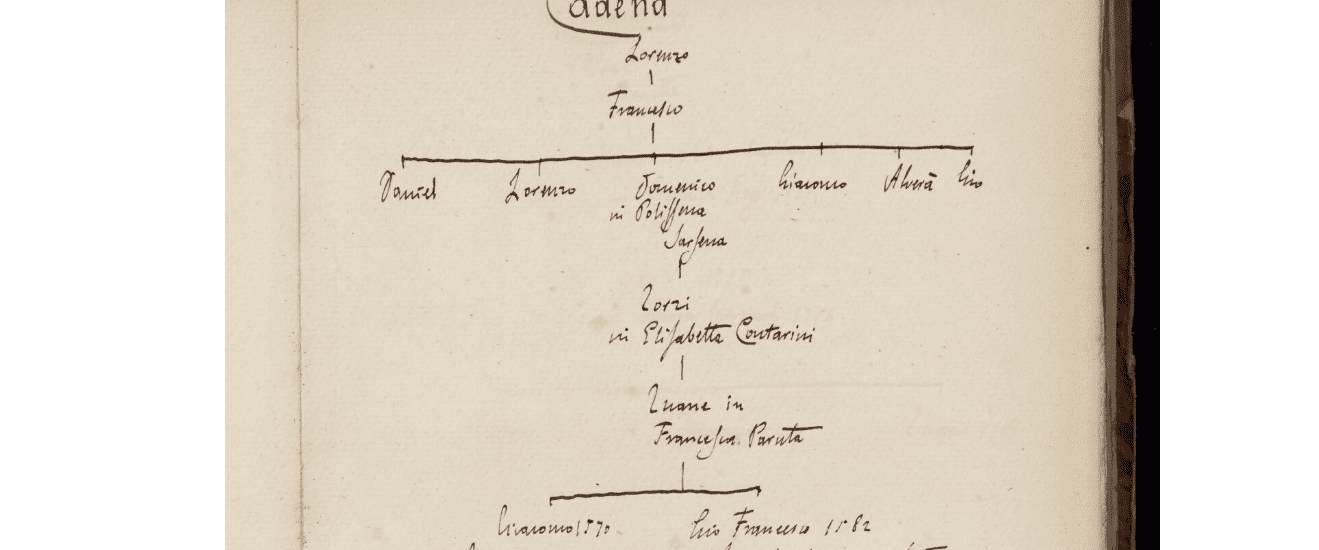 Cadena
Lorenzo
Francesco
Daniel Lorenzo Domenico Giacomo Alverà Gio
in Polissena
Zorzi
in Elisabetta Contarini
Zuane in
Francesca Paruta
Giacomo 1570 Gio Francesco 1582